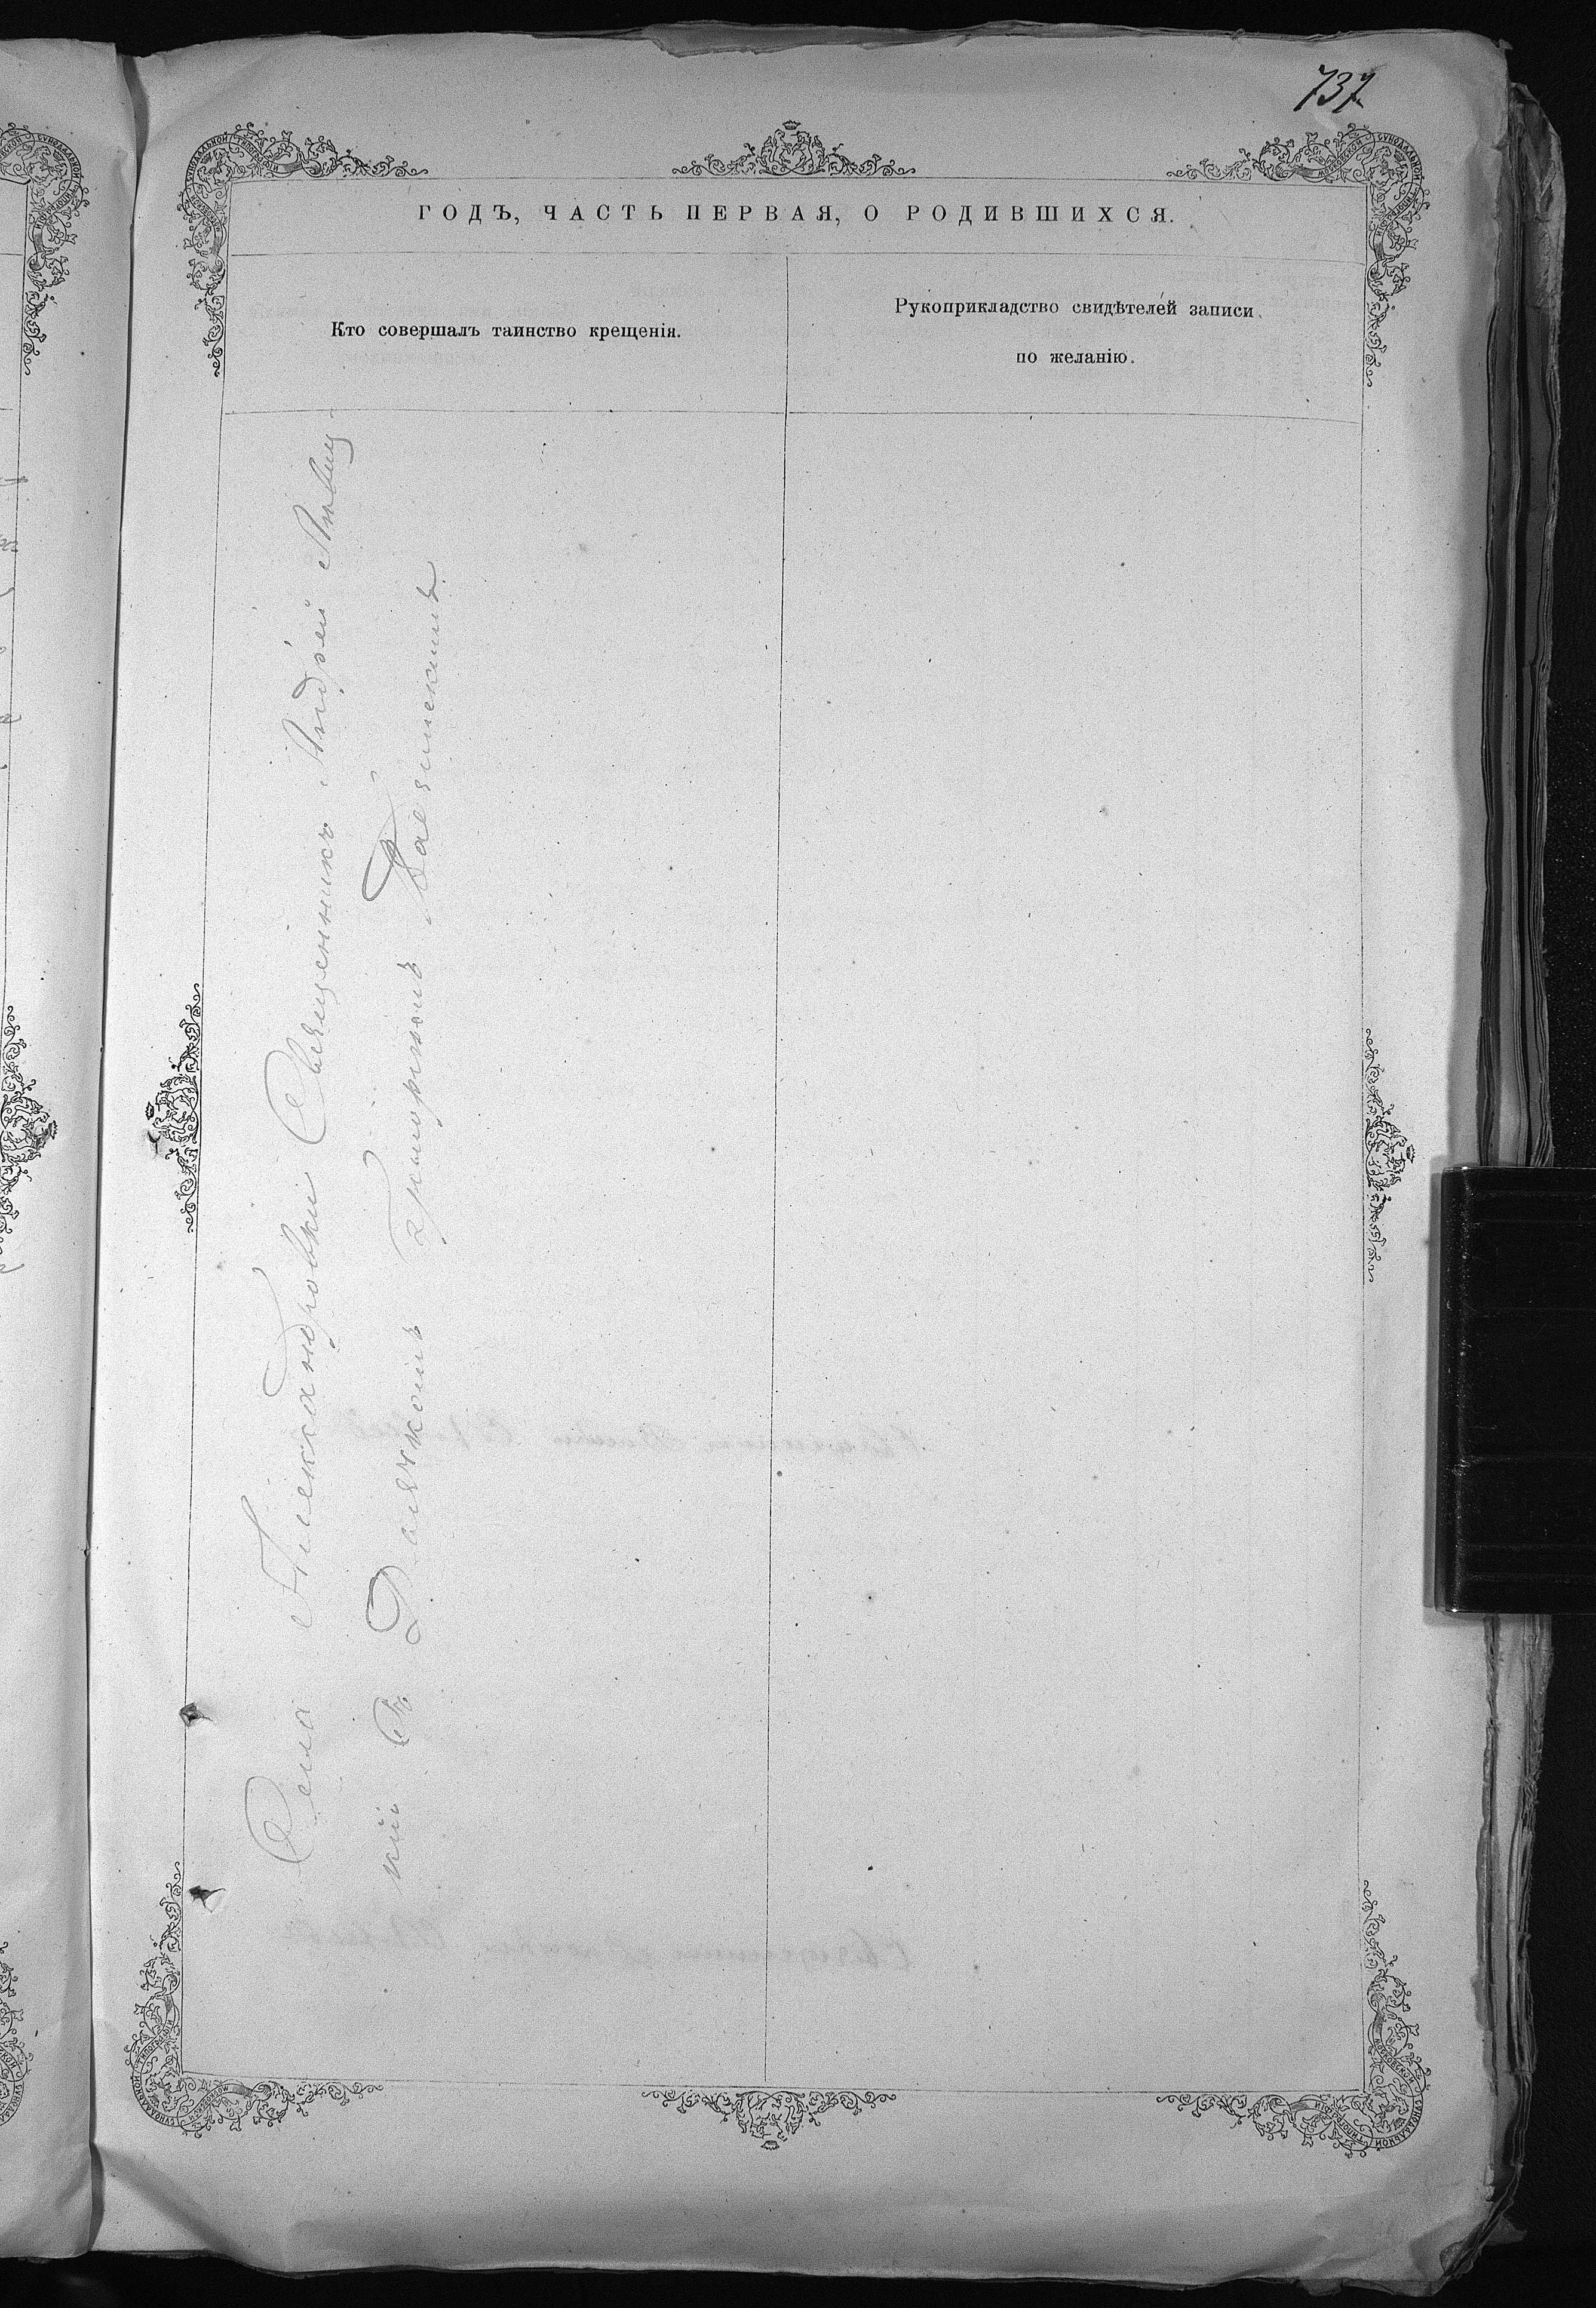 737.
ГОДЪ, ЧАСТЬ ПЕРВАЯ, О РОДИВШИХСЯ.
Кто совершалъ таинство крещенія.
Рукоприкладство свидѣтелей записи
по желанію.
Села Александровки Священникъ Андрей
кій съ Дьячкомъ Григоріемъ